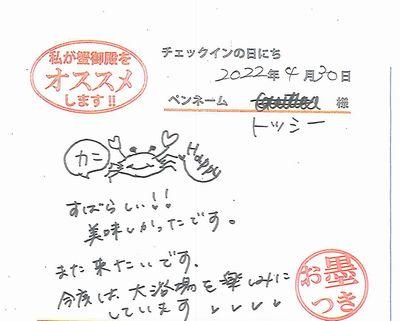 私が蟹御殿を
オススメ
します!!
チェックインの日にち
2022年4月30日
ペンネーム 様
トッシー
カニ
Happy
すばらしい!!
美味しかったです。
また来たいです。
今度は、大浴場を楽しみに
しています
お墨
つき